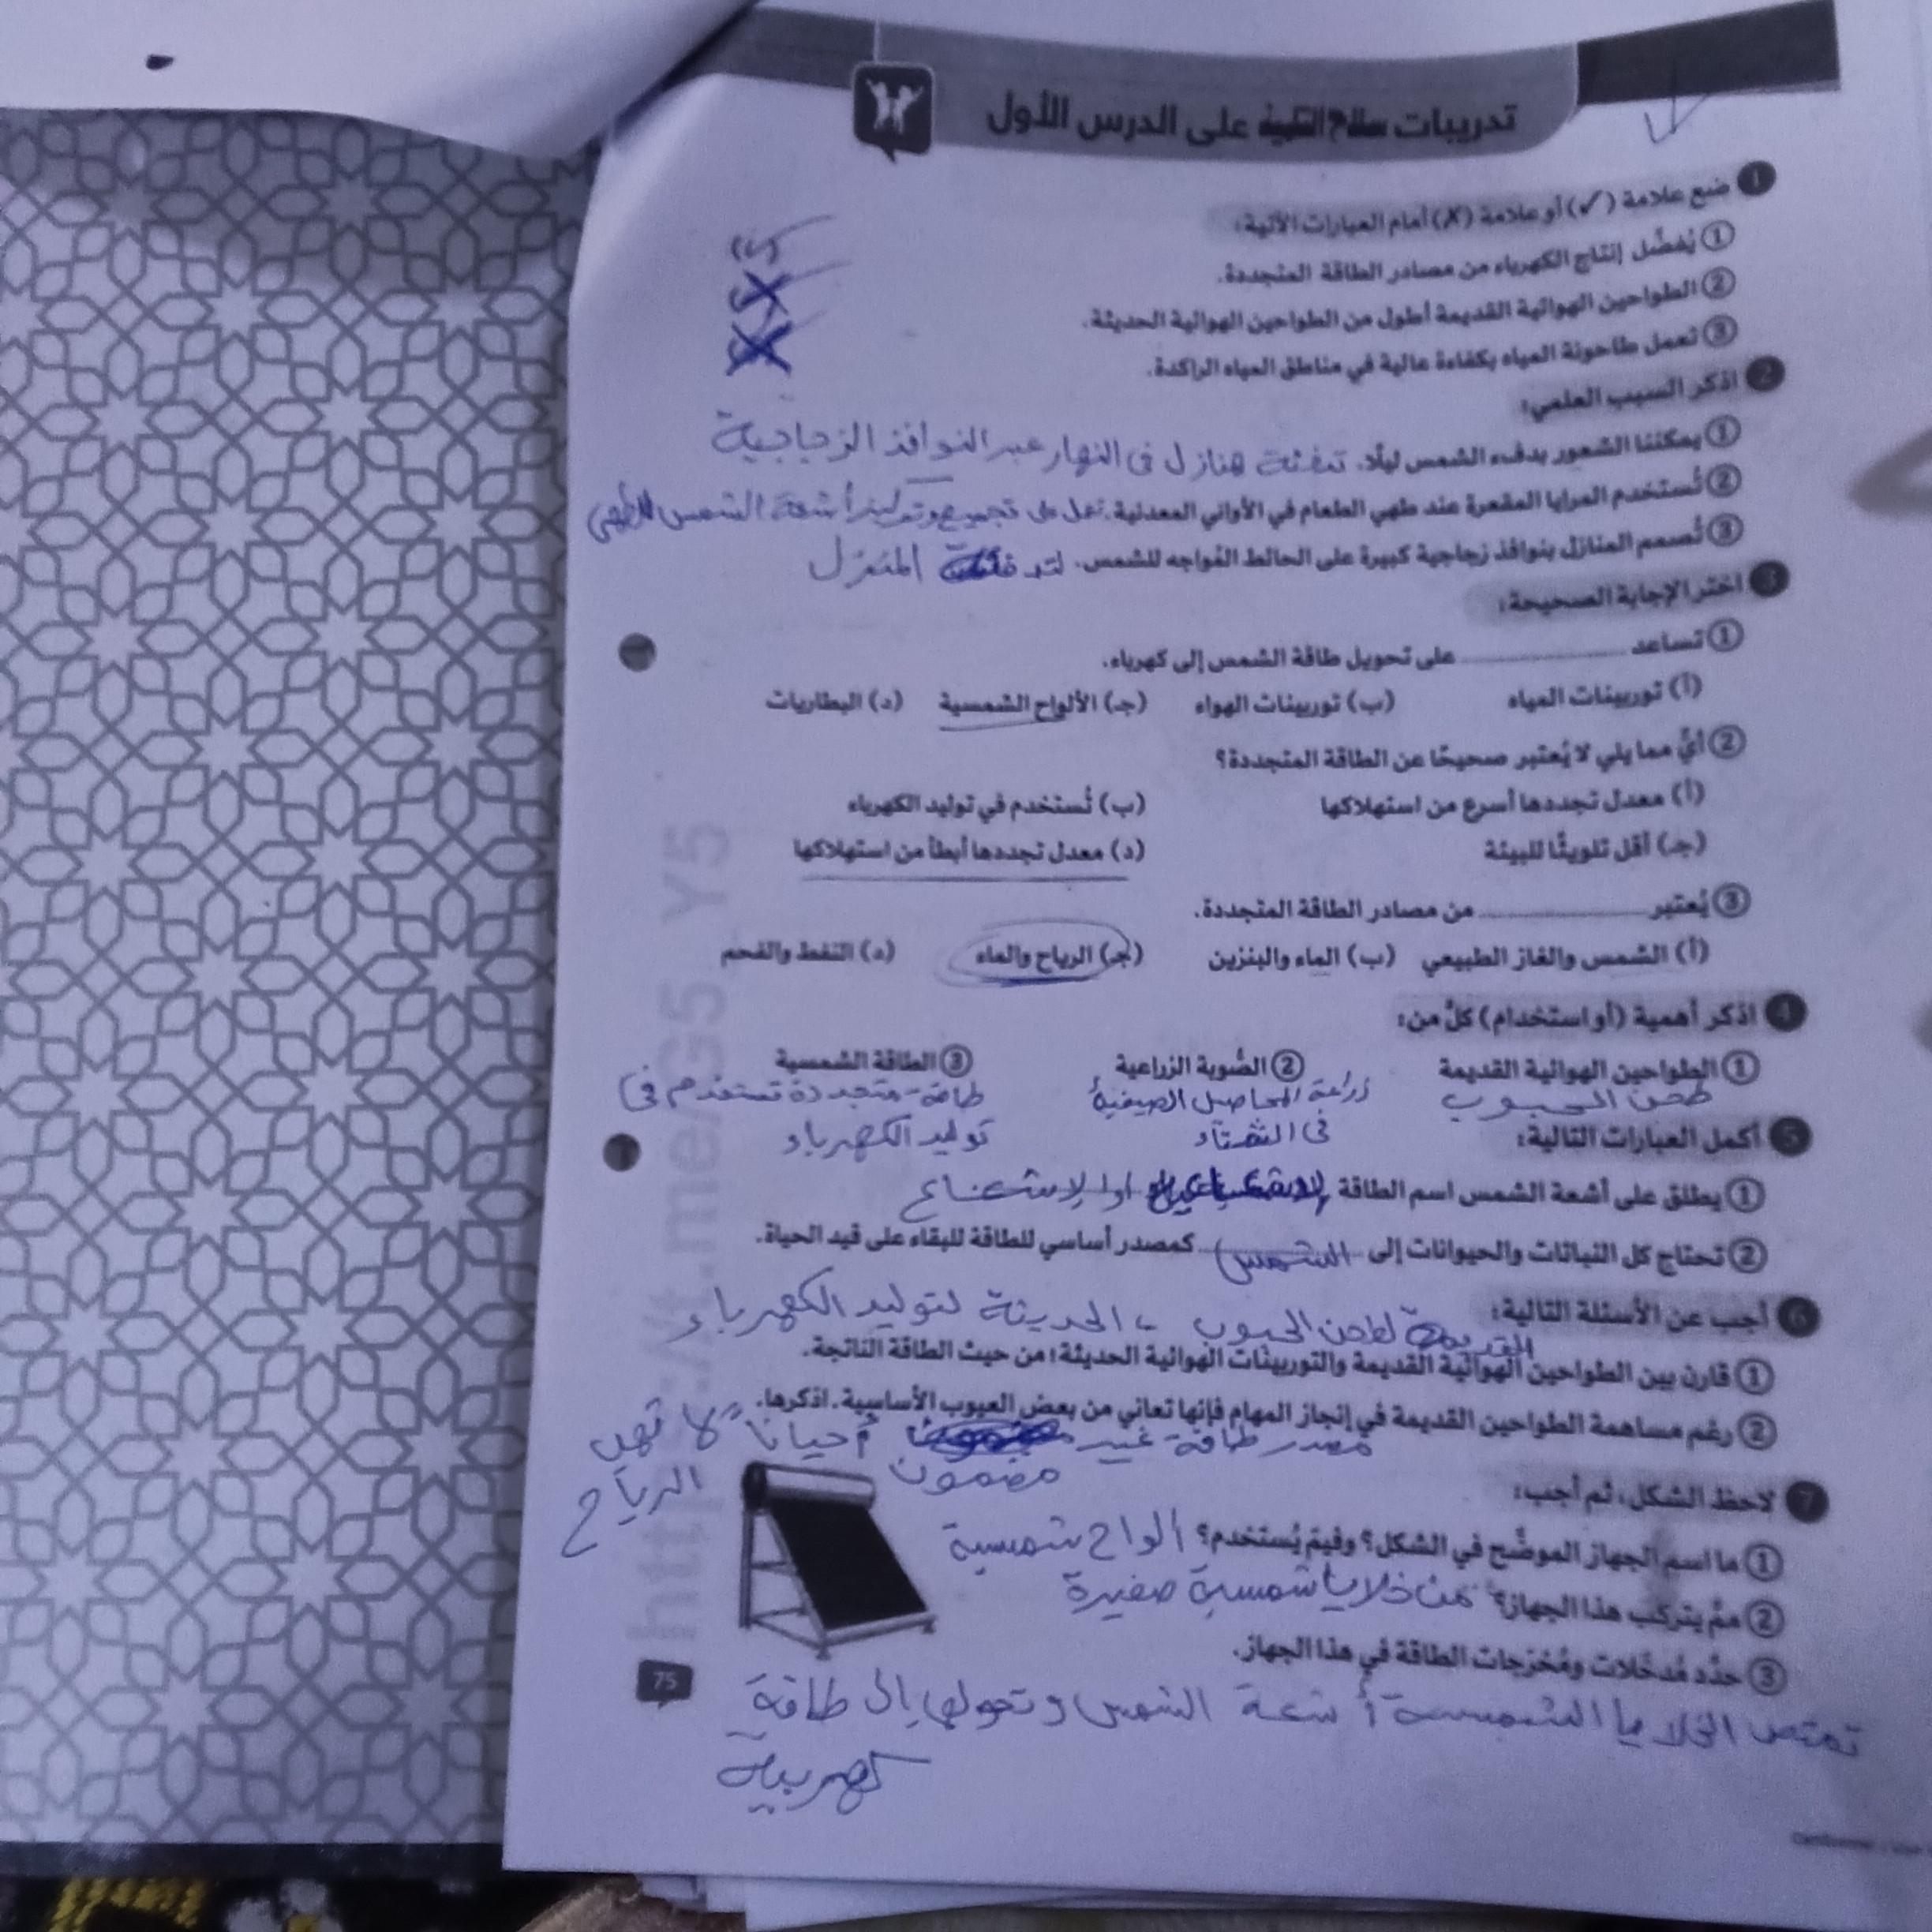 تدريبات سلاح التلميذ على الدرس الأول
1 ضع علامة (✓) أو علامة (✗) أمام العبارات الآتية:
① يُفضَّل إنتاج الكهرباء من مصادر الطاقة المتجددة. (✓)
② الطواحين الهوائية القديمة أطول من الطواحين الهوائية الحديثة. (✗)
③ تعمل طاحونة المياه بكفاءة عالية في مناطق المياه الراكدة. (✗)
2 اذكر السبب العلمي:
① يمكننا الشعور بدفء الشمس ليلًا. تدفئة منازل فى النهار عبر النوافذ الزجاجية
② تُستخدم المرايا المقعرة عند طهي الطعام في الأواني المعدنية. تعمل على تجميع وتركيز أشعة الشمس للطهى
③ تُصمم المنازل بنوافذ زجاجية كبيرة على الحائط المُواجه للشمس. لتدفئة المنزل
3 اختر الإجابة الصحيحة:
① تساعد ............ على تحويل طاقة الشمس إلى كهرباء.
(أ) توربينات المياه (ب) توربينات الهواء (جـ) الألواح الشمسية (د) البطاريات
② أيٌّ مما يلي لا يُعتبر صحيحًا عن الطاقة المتجددة؟
(أ) معدل تجددها أسرع من استهلاكها (ب) تُستخدم في توليد الكهرباء
(جـ) أقل تلويثًا للبيئة (د) معدل تجددها أبطأ من استهلاكها
③ يُعتبر ............ من مصادر الطاقة المتجددة.
(أ) الشمس والغاز الطبيعي (ب) الماء والبنزين (جـ) الرياح والماء (د) النفط والفحم
4 اذكر أهمية (أو استخدام) كلٍّ من:
① الطواحين الهوائية القديمة ② الصُّوبة الزراعية ③ الطاقة الشمسية
طحن الحبوب زراعة المحاصيل الصيفية طاقة متجددة تستخدم فى
فى الشتاء توليد الكهرباء
5 أكمل العبارات التالية:
① يطلق على أشعة الشمس اسم الطاقة او الإشعاع
② تحتاج كل النباتات والحيوانات إلى الشمس كمصدر أساسي للطاقة للبقاء على قيد الحياة.
6 أجب عن الأسئلة التالية:
القديمة لطحن الحبوب ، الحديثة لتوليد الكهرباء
① قارن بين الطواحين الهوائية القديمة والتوربينات الهوائية الحديثة؛ من حيث الطاقة الناتجة.
② رغم مساهمة الطواحين القديمة في إنجاز المهام فإنها تعاني من بعض العيوب الأساسية. اذكرها.
مصدر طاقة غير مضمون أحياناً لا تهب الرياح
7 لاحظ الشكل، ثم أجب:
① ما اسم الجهاز الموضَّح في الشكل؟ وفيمَ يُستخدم؟ ألواح شمسية
② ممَّ يتركب هذا الجهاز؟ من خلايا شمسية صغيرة
③ حدِّد مُدخَلات ومُخرَجات الطاقة في هذا الجهاز.
تمتص الخلايا الشمسية أشعة الشمس وتحولها إلى طاقة
كهربية
75
https://t.me/G5_Y5